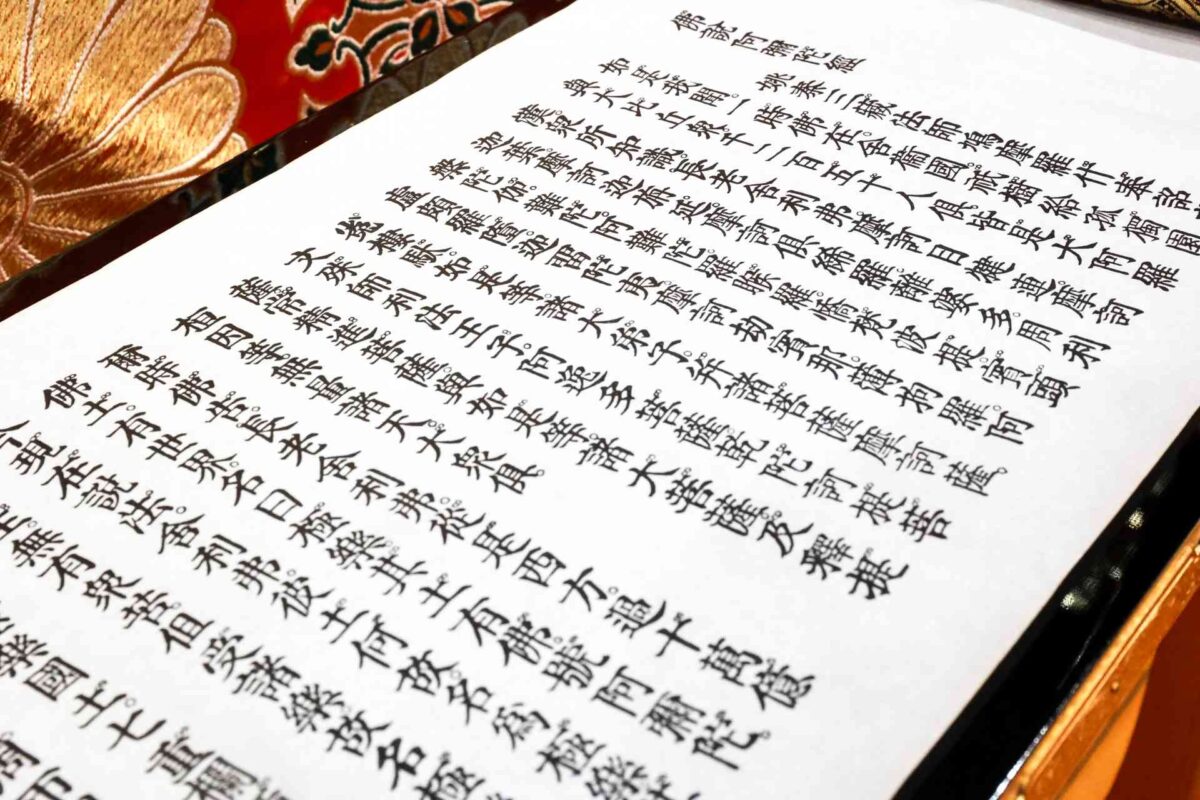 佛說阿彌陀經
姚秦三藏法師鳩摩羅什奉詔
如是我聞。一時佛在。舍衞國。祇樹給孤獨園
與大比丘衆。千二百五十人俱。皆是大阿羅
漢。衆所知識。長老舍利弗。摩訶目犍連。摩訶
迦葉。摩訶迦旃延。摩訶俱絺羅。離婆多。周利
槃陀伽。難陀。阿難陀。羅睺羅。憍梵波提。賓頭
盧頗羅墮。迦留陀夷。摩訶劫賓那。薄拘羅。阿
㝹樓馱。如是等。諸大弟子。并諸菩薩摩訶薩。
文殊師利法王子。阿逸多菩薩。乾陀訶提菩
薩。常精進菩薩。與如是等。諸大菩薩。及釋提
桓因等。無量諸天。大衆俱。
爾時佛告。長老舍利弗。從是西方。過十萬億
佛土。有世界。名曰極樂。其土有佛。號阿彌陀。
今現在說法。舍利弗。彼土何故。名爲極樂。
生。無有衆苦。但受諸樂。故名極
樂國土。七重欄
周帀